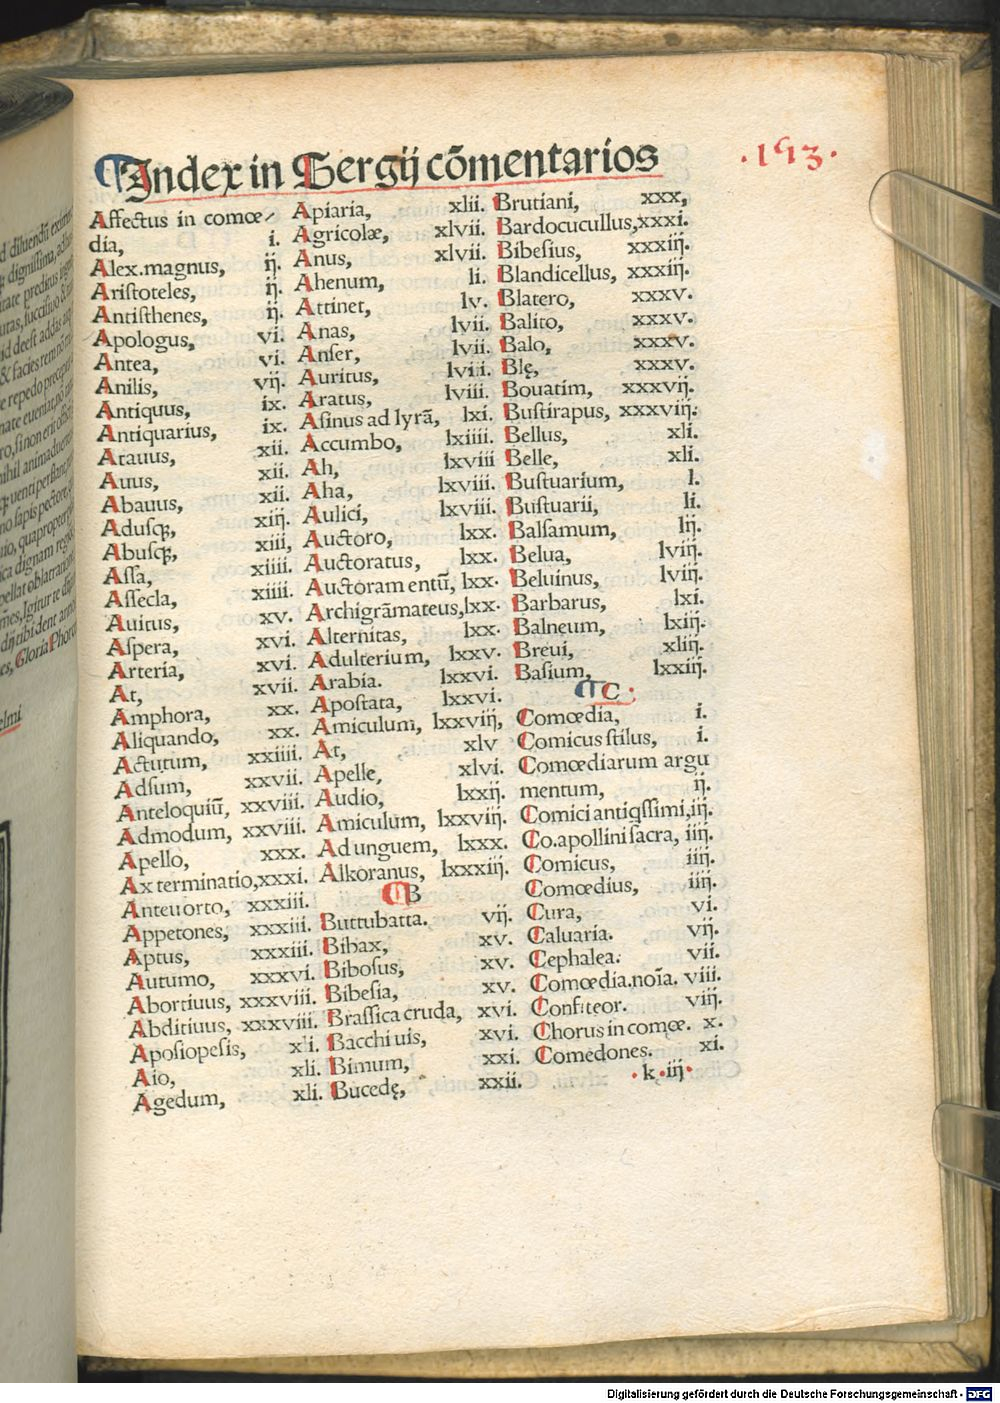 Index in Sergij cõmentarios
·153·
Affectus in comœ-
dia, i.
Alex.magnus, ij.
Aristoteles, ij.
Antisthenes, ij.
Apologus, vi.
Antea, vi.
Anilis, vij.
Antiquus, ix.
Antiquarius, ix.
Atauus, xii.
Auus, xii.
Abauus, xii.
Adusq;, xiij.
Abusq;, xiii,
Assa, xiiii.
Assecla, xiiii.
Auitus, xv.
Aspera, xvi.
Arteria, xvi.
At, xvii.
Amphora, xx.
Aliquando, xx.
Actutum, xxiiii.
Adsum, xxvii.
Anteloquiũ, xxviii.
Admodum, xxviii.
Apello, xxx.
Ax terminatio,xxxi.
Anteuorto, xxxiii.
Appetones, xxxiii.
Aptus, xxxiii.
Autumo, xxxvi.
Abortiuus, xxxviii.
Abditiuus, xxxviii.
Aposiopesis, xli.
Aio, xli.
Agedum, xli.
Apiaria, xlii.
Agricolæ, xlvii.
Anus, xlvii.
Ahenum, li.
Attinet, lv.
Anas, lvii.
Anser, lvii.
Auritus, lviii.
Aratus, lviii.
Asinus ad lyrã, lxi.
Accumbo, lxiiii.
Ah, lxviii
Aha, lxviii.
Aulici, lxviii.
Auctoro, lxx.
Auctoratus, lxx.
Auctoramentũ, lxx.
Archigrãmateus,lxx.
Alternitas, lxx.
Adulterium, lxxv.
Arabia. lxxvi.
Apostata, lxxvi.
Amiculum, lxxviij,
At, xlv
Apelle, xlvi.
Audio, lxxij.
Amiculum, lxxviij.
Ad unguem, lxxx.
Alkoranus, lxxxiij.
B
Buttubatta. vij.
Bibax, xv.
Bibosus, xv.
Bibesia, xv.
Brassica cruda, xvi.
Bacchiuis, xvi.
Bimum, xxi.
Bucedę, xxii.
Brutiani, xxx,
Bardocucullus,xxxi.
Bibesius, xxxiij.
Blandicellus, xxxiij.
Blatero, xxxv.
Balito, xxxv.
Balo, xxxv.
Blę, xxxv.
Bouatim, xxxvij.
Bustirapus, xxxviij.
Bellus, xli.
Belle, xli.
Bustuarium, l.
Bustuarii, li.
Balsamum, lij.
Belua, lviij.
Beluinus, lviij.
Barbarus, lxi.
Balneum, lxiij.
Breui, xliij.
Basium, lxxiij.
C
Comœdia, i.
Comicus stilus, i.
Comœdiarum argu
mentum, ij.
Comici antiqssimi,iij.
Co.apollini sacra, iiij.
Comicus, iiij.
Comœdius, iiij.
Cura, vi.
Caluaria. vij.
Cephalea. vii.
Comœdia.noĩa. viii.
Confiteor. viij.
Chorus in comœ. x.
Comedones. xi.
·k·iij·
Digitalisierung gefördert durch die Deutsche Forschungsgemeinschaft - DFG